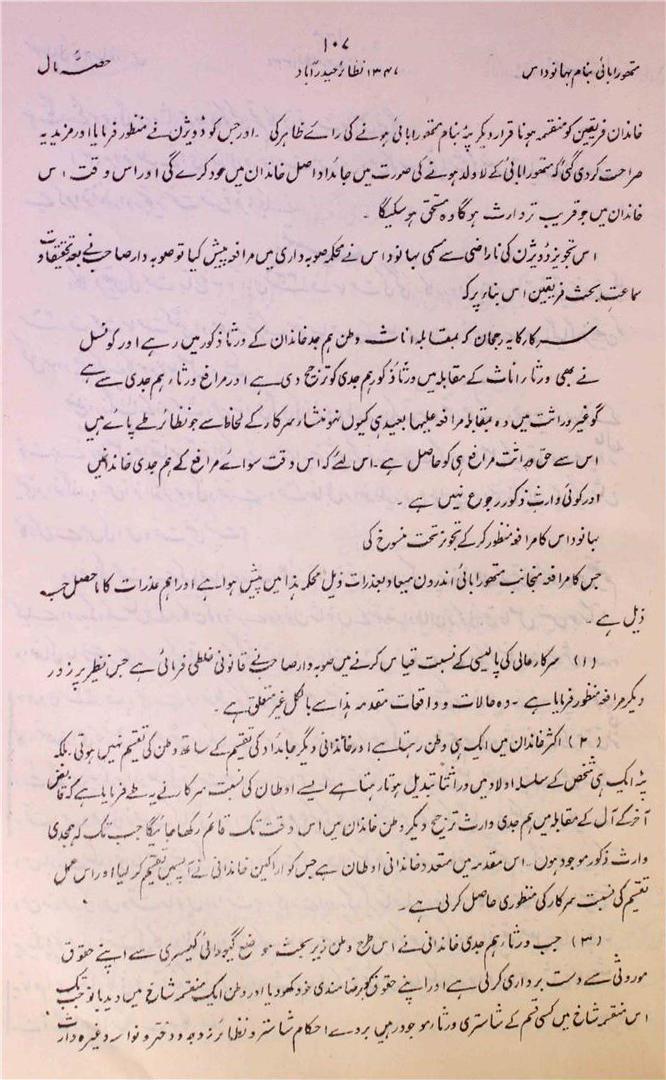 ۱۰۷
متھورابائی بنام بھانوداس ۱۳۴۷ نظائر حیدرآباد حصہ مال
خاندان فریقین کو منقسمہ ہونا قرار دیکر پٹہ بنام متھورابائی ہونے کی رائے ظاہر کی ۔ اور جس کو ڈویژن نے منظور فرمایا اور مزید یہ
صراحت کر دی گئی کہ متھورابائی کے لاولد ہونے کی صورت میں جائداد اصل خاندان میں عود کرے گی اور اس وقت اس
خاندان میں جو قریب تر وارث ہوگا وہ مستحق ہو سکیگا ۔
اس تجویز ڈویژن کی ناراضی سے مسمی بھانوداس نے محکمہ صوبہ داری میں مرافعہ پیش کیا تو صوبہ دار صاحب نے بعد تحقیقات و
سماعت بحث فریقین اس بناء پر کہ
سرکار کا یہ رجحان کہ بمقابلہ اناث وطن ہم جد خاندان کے ورثا ذکور میں رہے اور کونسل
نے بھی ورثاء اناث کے مقابلہ میں ورثا ذکور ہم جدی کو ترجیح دی ہے اور مرافع ورثاء ہم جدی سے ہے
گو غیر وراثت میں وہ بمقابلہ مرافعہ علیہا بعید ہی کیوں نہو منشاء سرکار کے لحاظ سے جو نظائر طے پائے ہیں
اس سے حق وراثت مرافع ہی کو حاصل ہے ۔ اس لئے کہ اس وقت سوائے مرافع کے ہم جدی خاندان میں
اور کوئی وارث ذکور رجوع نہیں ہے ۔
بھانوداس کا مرافعہ منظور کر کے تجویز تحت منسوخ کی
جس کا مرافعہ منجانب متھورابائی اندرون میعاد بعذرات ذیل محکمہ ہذا میں پیش ہوا ہے اور اہم عذرات کا ماحصل حسب
ذیل ہے ۔
(۱) سرکار عالی کی پالیسی کے نسبت قیاس کرنے میں صوبہ دار صاحب نے قانونی غلطی فرمائی ہے جس نظیر پر زور
دیکر مرافعہ منظور فرمایا ہے ۔ وہ حالات و واقعات مقدمہ ہذا سے بالکل غیر متعلق ہے ۔
(۲) اکثر خاندان میں ایک ہی وطن رہتا ہے اور خاندانی دیگر جائداد کی تقسیم کے ساتھ وطن کی تقسیم نہیں ہوتی ۔ بلکہ
پٹہ ایک ہی شخص کے سلسلہ اولاد میں وراثتاً تبدیل ہوتا رہتا ہے ایسے اوطان کی نسبت سرکار نے یہ طے فرمایا ہے کہ قابض
آخر کے آل کے مقابلہ میں ہم جدی وارث ترجیح دیکر وطن خاندان میں اس وقت تک قائم رکھا جائیگا جب تک کہ ہمجدی
وارث ذکور موجود ہوں ۔ اس مقدمہ میں متعدد خاندانی اوطان ہے جس کو اراکین خاندانی نے آپسمیں تقسیم کر لیا اور اس عمل
تقسیم کی نسبت سرکار کی منظوری حاصل کر لی ہے ۔
(۳) جب ورثاء ہم جدی خاندانی نے اس طرح وطن زیر بحث موضع کیسری سے اپنے حقوق
موروثی سے دست برداری کر لی ہے اور اپنے حقوق کو رضامندی خود کھو دیا اور وطن ایک منقسمہ شاخ میں دیدیا تو جب تک
اس منقسمہ شاخ میں کسی قسم کے شاستری ورثاء موجود رہیں بروے احکام شاستر و نظائر زوجہ و دختر و نواسہ وغیرہ وارث